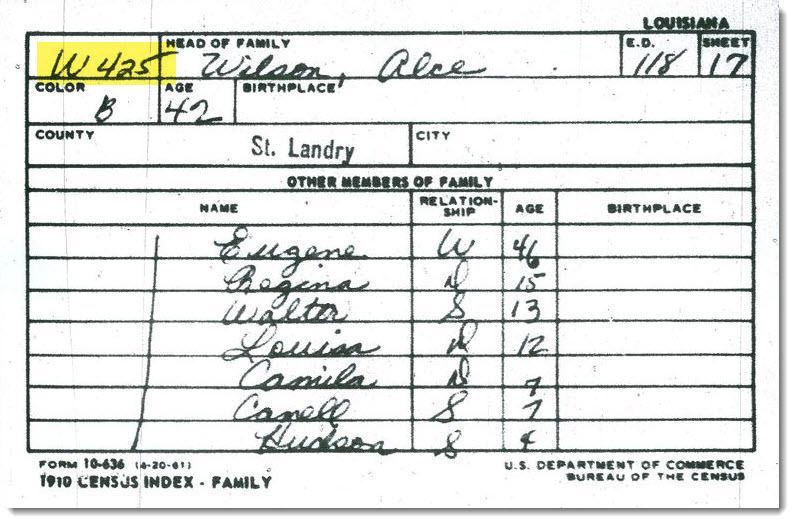 LOUISIANA
W 425 HEAD OF FAMILY Wilson, Alce E.D. 118 SHEET 17
COLOR B AGE 42 BIRTHPLACE
COUNTY St. Landry CITY
OTHER MEMBERS OF FAMILY
NAME RELATION-SHIP AGE BIRTHPLACE
Eugene W 46
Regina D 15
Walter S 13
Louisa D 12
Camila D 7
Canell S 7
Hudson S 4
FORM 10-636 (6-20-61) U.S. DEPARTMENT OF COMMERCE
1910 CENSUS INDEX - FAMILY BUREAU OF THE CENSUS